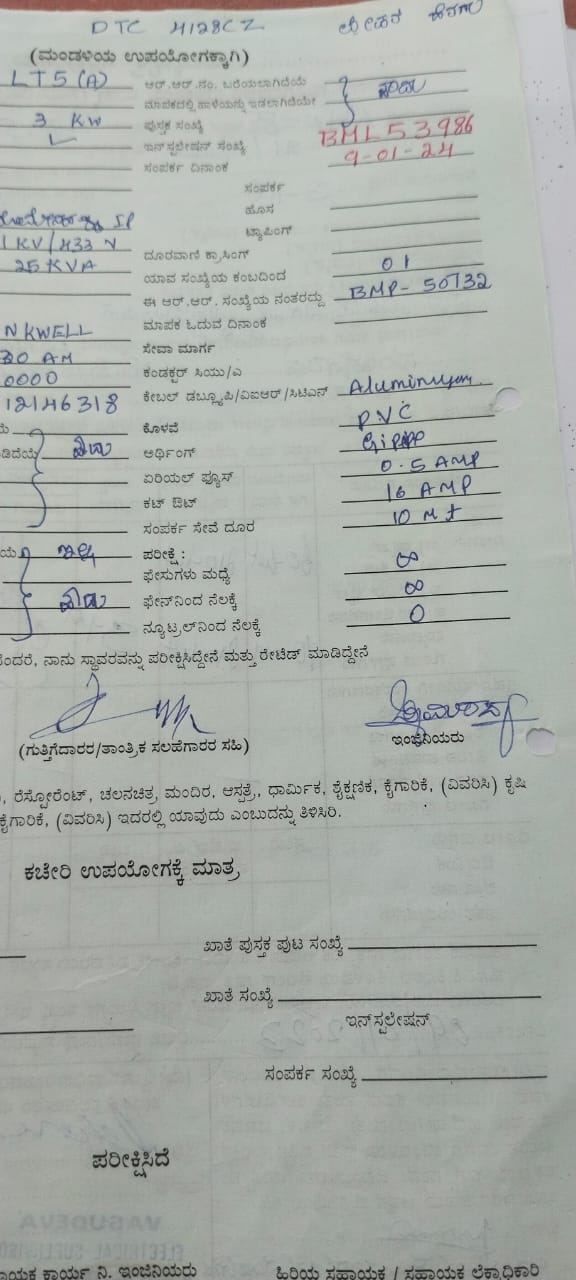 DTC 4128CZ
(ಮಂಡಳಿಯ ಉಪಯೋಗಕ್ಕಾಗಿ)
LT5 (A) ಆರ್.ಆರ್.ನಂ. ಬರೆಯಲಾಗಿದೆಯೆ
ಮಾಪಕದಲ್ಲಿ ಹಾಳೆಯನ್ನು ಇಡಲಾಗಿದೆಯೇ
3 KW ಪುಸ್ತಕ ಸಂಖ್ಯೆ BML53986
ಇನ್‌ಸ್ಟಲೇಷನ್ ಸಂಖ್ಯೆ 9-01-24
ಸಂಪರ್ಕ ದಿನಾಂಕ
ಸಂಪರ್ಕ
ಹೊಸ
ಟ್ಯಾಪಿಂಗ್
1 KV/433 V ದೂರವಾಣಿ ಕ್ರಾಸಿಂಗ್
25 KVA ಯಾವ ಸಂಖ್ಯೆಯ ಕಂಬದಿಂದ 01
ಈ ಆರ್.ಆರ್. ಸಂಖ್ಯೆಯ ನಂತರದ್ದು BMP-50732
NKWELL ಮಾಪಕ ಓದುವ ದಿನಾಂಕ
30 AM ಸೇವಾ ಮಾರ್ಗ
0000 ಕಂಡಕ್ಟರ್ ಸಿಯು/ಎ
12146318 ಕೇಬಲ್ ಡಬ್ಲ್ಯೂಪಿ/ವಿಐಆರ್/ಸಿಟಿಎಸ್ Aluminuyam
ಕೊಳವೆ PVC
ಅರ್ಥಿಂಗ್
ಏರಿಯಲ್ ಫ್ಯೂಸ್ 0.5 AMP
ಕಟ್ ಔಟ್ 16 AMP
ಸಂಪರ್ಕ ಸೇವೆ ದೂರ 10 Mt
ಪರೀಕ್ಷೆ :
ಫೇಸುಗಳು ಮಧ್ಯೆ ∞
ಫೇಸ್‌ನಿಂದ ನೆಲಕ್ಕೆ ∞
ನ್ಯೂಟ್ರಲ್‌ನಿಂದ ನೆಲಕ್ಕೆ 0
ನಾನು ಸ್ಥಾವರವನ್ನು ಪರೀಕ್ಷಿಸಿದ್ದೇನೆ ಮತ್ತು ರೇಟಿಡ್ ಮಾಡಿದ್ದೇನೆ
(ಗುತ್ತಿಗೆದಾರರ/ತಾಂತ್ರಿಕ ಸಲಹೆಗಾರರ ಸಹಿ) ಇಂಜಿನಿಯರು
, ರೆಸ್ಟೋರೆಂಟ್, ಚಲನಚಿತ್ರ ಮಂದಿರ, ಆಸ್ಪತ್ರೆ, ಧಾರ್ಮಿಕ, ಶೈಕ್ಷಣಿಕ, ಕೈಗಾರಿಕೆ, (ವಿವರಿಸಿ) ಕೃಷಿ
ಕೈಗಾರಿಕೆ, (ವಿವರಿಸಿ) ಇದರಲ್ಲಿ ಯಾವುದು ಎಂಬುದನ್ನು ತಿಳಿಸಿರಿ.
ಕಚೇರಿ ಉಪಯೋಗಕ್ಕೆ ಮಾತ್ರ
ಖಾತೆ ಪುಸ್ತಕ ಪುಟ ಸಂಖ್ಯೆ
ಖಾತೆ ಸಂಖ್ಯೆ
ಇನ್‌ಸ್ಪಲೇಷನ್
ಸಂಪರ್ಕ ಸಂಖ್ಯೆ
ಪರೀಕ್ಷಿಸಿದೆ
ಕಾರ್ಯ ನಿ. ಇಂಜಿನಿಯರು ಹಿರಿಯ ಸಹಾಯಕ / ಸಹಾಯಕ ಲೆಕ್ಕಾಧಿಕಾರಿ